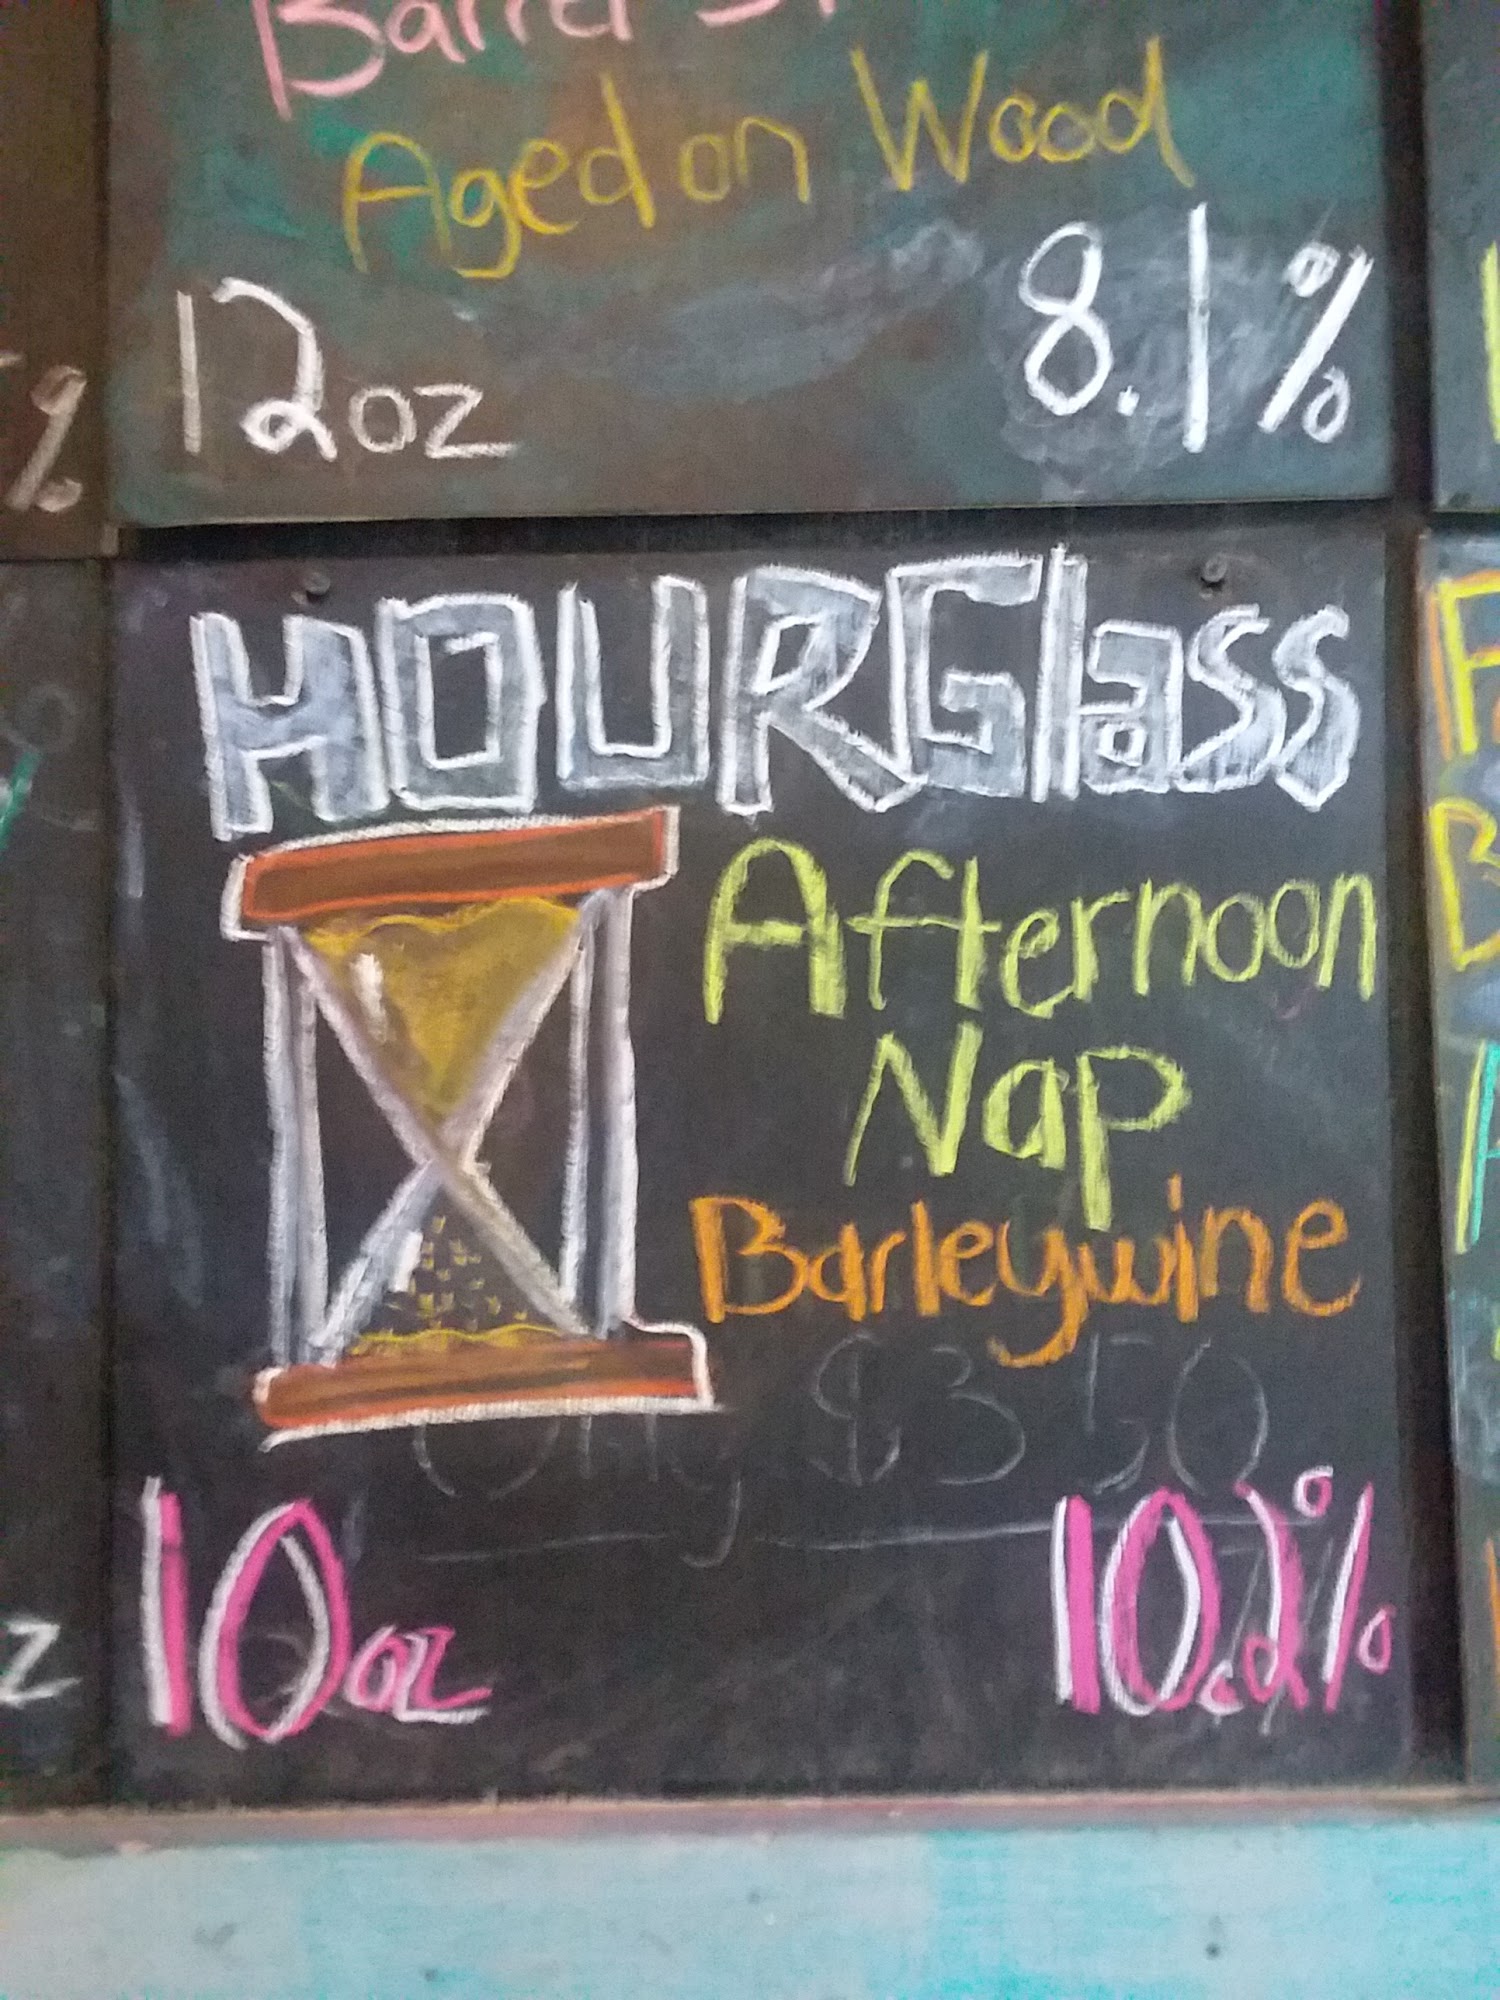 Barrel
Aged on Wood
12oz 8.1%
HOURGlass
Afternoon
Nap
Barleywine
Only $3.50
10oz 10.2%